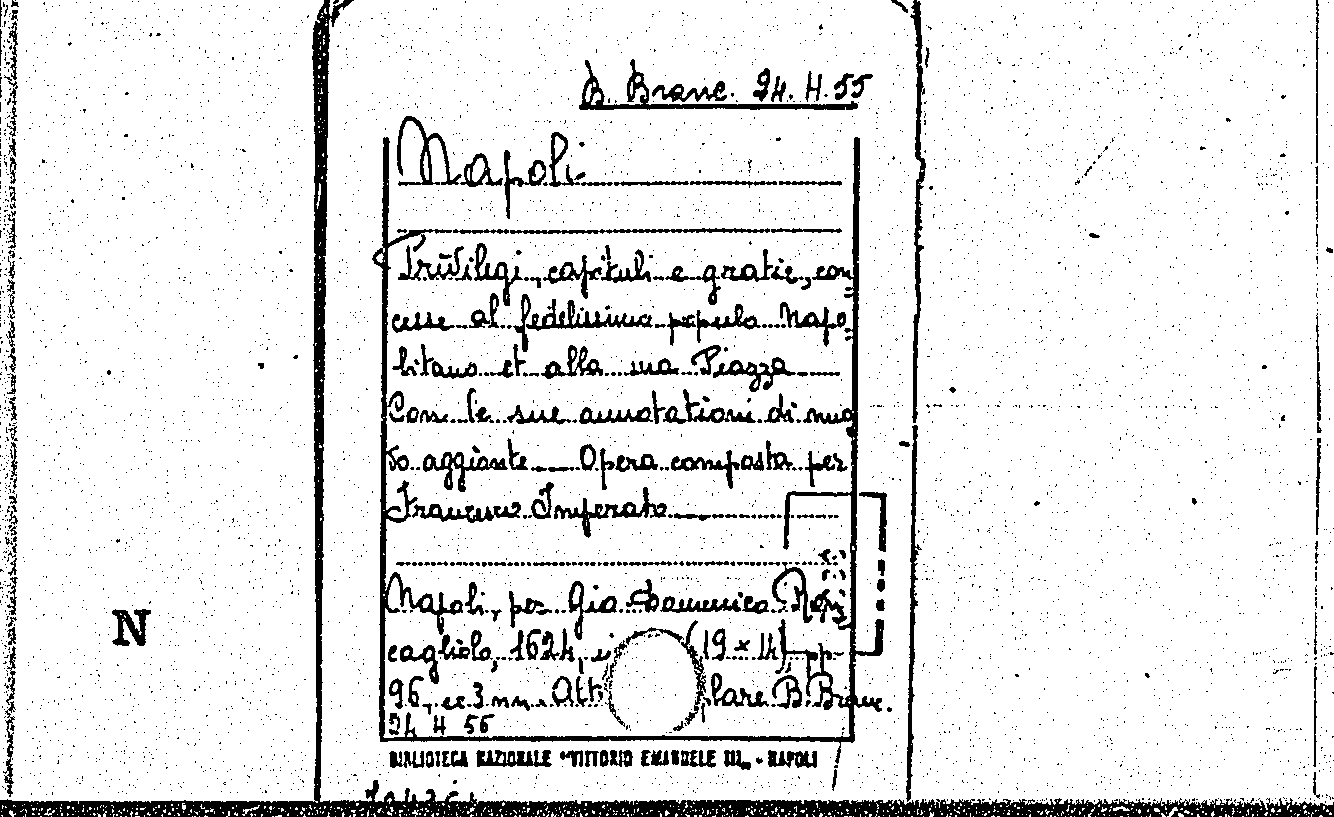 B. Branc. 24. H. 55
Napoli
Privilegi, capituli e gratie, con
cesse al fedelissimo populo Napo
litano et alla sua Piazza
Con le sue annotationi di nuo
vo aggionte Opera composta per
Francesco Imperato
Napoli, per Gio. Domenico
cagliolo, 1624, i (19 x 14), pp.
96, cc 3 nn. Alt lare B. Branc.
24 H 56
BIBLIOTECA NAZIONALE "VITTORIO EMANUELE III" - NAPOLI
N